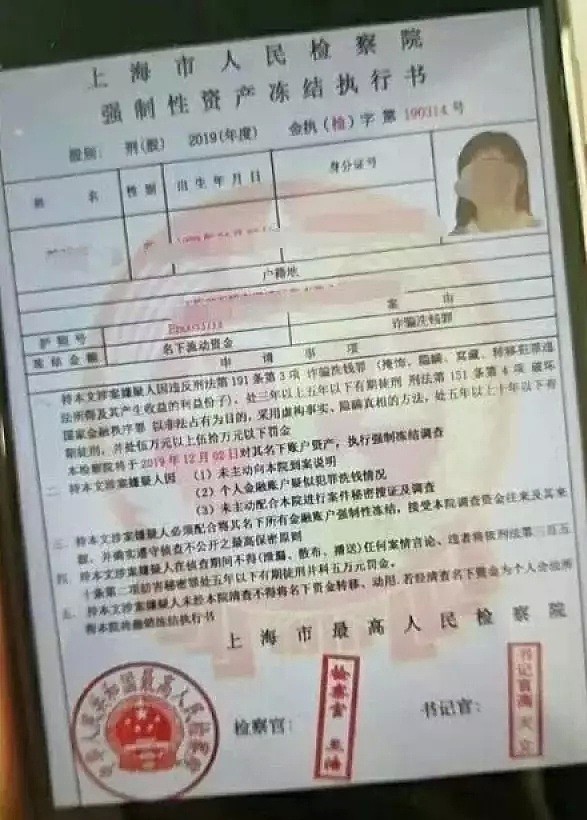 上海市人民检察院
强制性资产冻结执行书
股别: 刑(股) 2019(年度) 金执(检)字第190314号
姓 名 性别 出生年月日 身分证号
户籍地
护照号 案由
冻结金额 名下流动资金 诈骗洗钱罪
申请事项
一、持本文涉案嫌疑人因违反刑法第191条第3项 诈骗洗钱罪(掩饰、隐瞒、窝藏、转移犯罪违
法所得及其产生收益的利益份子)、处三年以上五年以下有期徒刑 刑法第151条第4项 破坏
国家金融秩序罪 以非法占有为目的,采用虚构事实、隐瞒真相的方法,处五年以上十年以下有
期徒刑,并处伍万元以上伍拾万元以下罚金
本检察院将于2019年12月02日对其名下账户资产,执行强制冻结调查
二、持本文涉案嫌疑人因 (1)未主动向本院到案说明
(2)个人金融账户疑似犯罪洗钱情况
(3)未主动配合本院进行案件秘密搜证及调查
三、持本文涉案嫌疑人必须配合将其名下所有金融账户强制性冻结,接受本院调查资金往来及其来
源,并确实遵守侦查不公开之最高保密原则
四、持本文涉案嫌疑人在侦查期间不得(泄漏、散布、播送)任何案情言论、违者将依刑法第三百五
十条第二项妨害秘密罪处五年以下有期徒刑并科五万元罚金。
五、持本文涉案嫌疑人未经本院清查不得将名下资金转移、动用.若经清查名下资金为个人合法所
将本院的撤销冻结执行书
上海市最高人民检察院
检察官: 检察官
书记官: 书记官
中华人民共和国最高人民检察院